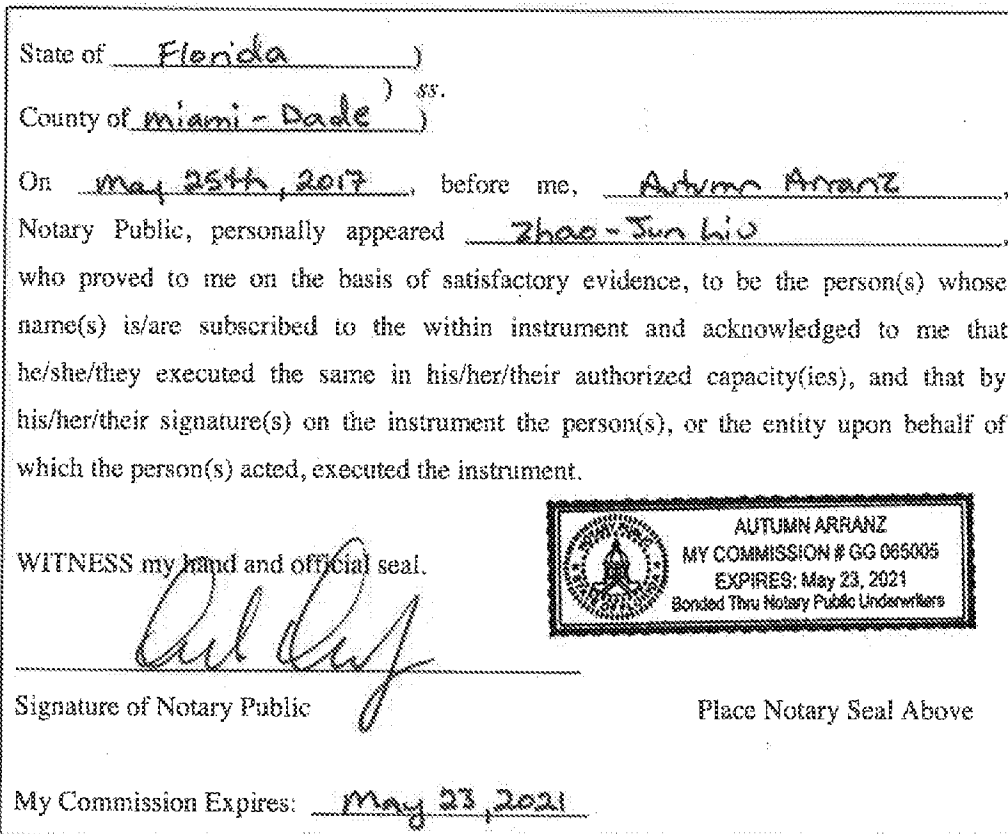 State of Florida )
) ss.
County of Miami - Dade )
On May 25th, 2017, before me, Autumn Arranz,
Notary Public, personally appeared Zhao-Jun Liu,
who proved to me on the basis of satisfactory evidence, to be the person(s) whose
name(s) is/are subscribed to the within instrument and acknowledged to me that
he/she/they executed the same in his/her/their authorized capacity(ies), and that by
his/her/their signature(s) on the instrument the person(s), or the entity upon behalf of
which the person(s) acted, executed the instrument.
WITNESS my hand and official seal.
AUTUMN ARRANZ
MY COMMISSION # GG 065005
EXPIRES: May 23, 2021
Bonded Thru Notary Public Underwriters
Signature of Notary Public
Place Notary Seal Above
My Commission Expires: May 23, 2021